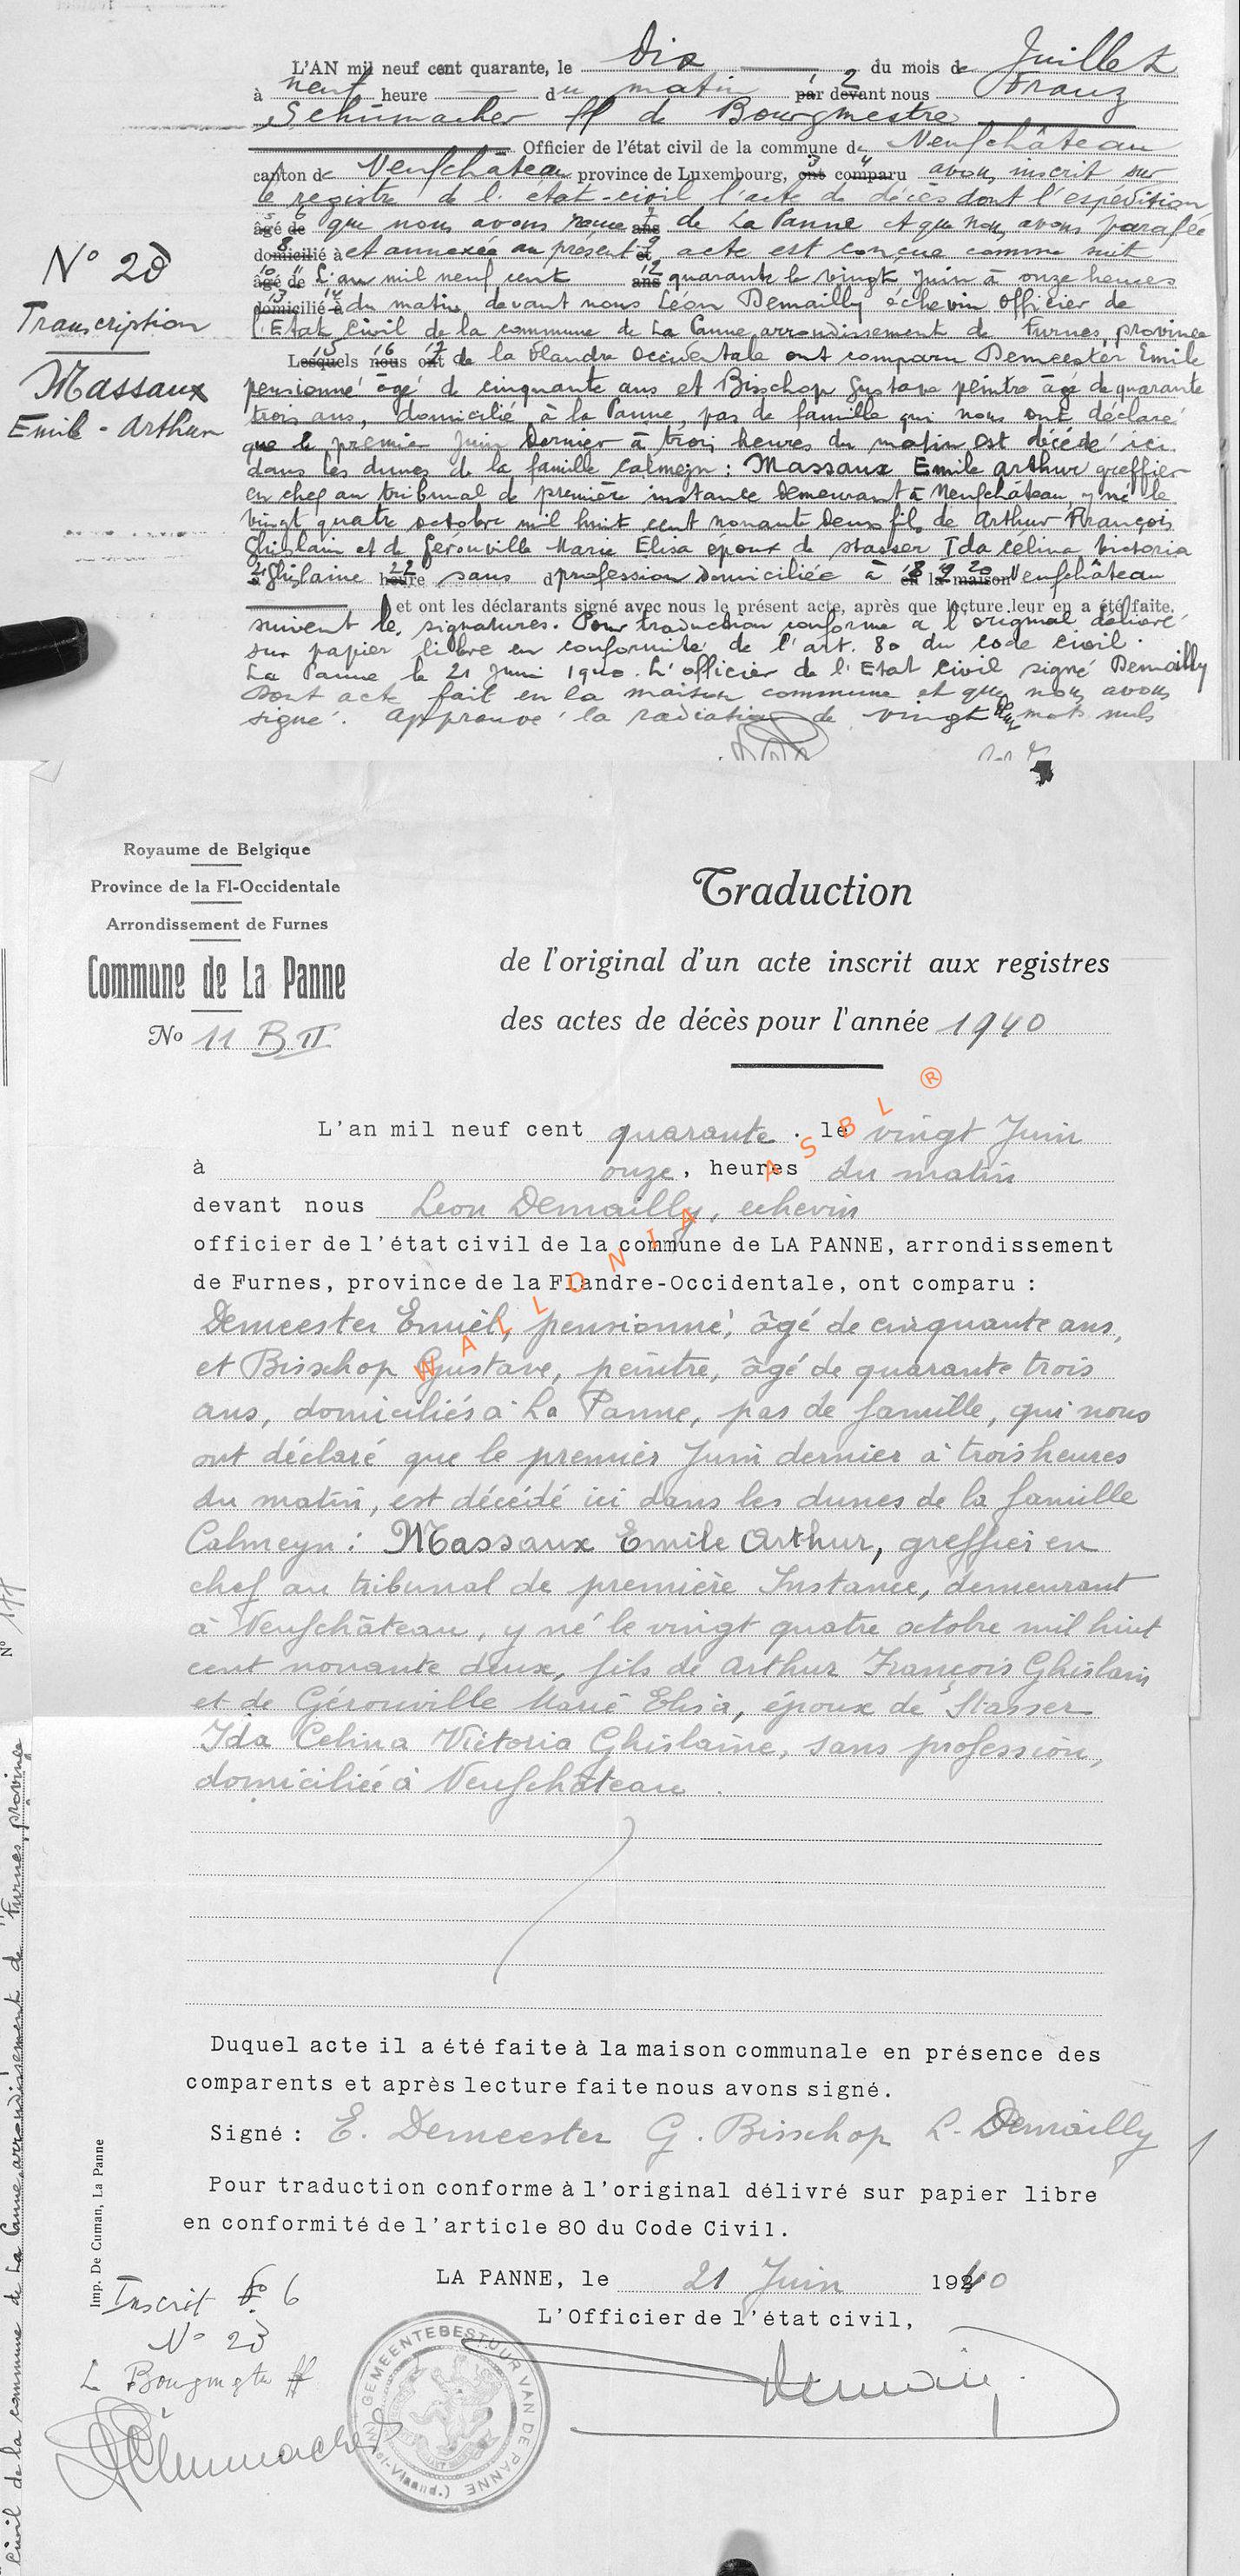 L'AN mil neuf cent quarante, le dix du mois de Juillet
à neuf heure du matin par devant nous Franz
Schumacher ff de Bourgmestre
Officier de l'état civil de la commune de Neufchâteau
canton de Neufchâteau province de Luxembourg, ont comparu avons inscrit sur
le registre de l'état-civil l'acte de décès dont l'expédition
âgé de que nous avons reçue ans de La Panne et que nous avons parafée
domicilié à et annexée au présent et acte est conçue comme suit
âgé de L'an mil neuf cent ans quarante le vingt Juin à onze heures
domicilié à du matin devant nous Léon Demailly échevin officier de
l'Etat Civil de la commune de La Panne arrondissement de Furnes, province
Lesquels nous ont de la Flandre Occidentale ont comparu Demeester Emile
pensionné âgé de cinquante ans et Bisschop Gustave peintre âgé de quarante
trois ans, domicilié à la Panne, pas de famille qui nous ont déclaré
que le premier Juin dernier à trois heures du matin est décédé ici
dans les dunes de la famille Calmeyn : Massaux Emile Arthur greffier
en chef au tribunal de première instance demeurant à Neufchâteau, y né le
vingt quatre octobre mil huit cent nonante deux fils de Arthur François
Ghislain et de Gérouville Marie Elisa époux de Stasser Ida Célina Victoria
à Ghislaine heure sans profession domiciliée à en la maison Neufchâteau
et ont les déclarants signé avec nous le présent acte, après que lecture leur en a été faite.
suivent les signatures. Pour traduction conforme à l'original délivré
sur papier libre en conformité de l'art. 80 du code civil.
La Panne le 21 Juin 1940. L'officier de l'Etat Civil signé Demailly
Dont acte fait en la maison commune et que nous avons
signé. Approuvé la radiation de vingt deux mots nuls
N° 23
Transcription
Massaux
Emile - Arthur
Royaume de Belgique
Province de la Fl-Occidentale
Arrondissement de Furnes
Commune de La Panne
No 11 B II
Traduction
de l'original d'un acte inscrit aux registres
des actes de décès pour l'année 1940
L'an mil neuf cent quarante . le vingt Juin
à onze, heures du matin
devant nous Leon Demailly, echevin
officier de l'état civil de la commune de LA PANNE, arrondissement
de Furnes, province de la Flandre-Occidentale, ont comparu :
Demeester Emiel, pensionné, âgé de cinquante ans,
et Bisschop Gustave, peintre, âgé de quarante trois
ans, domiciliés à La Panne, pas de famille, qui nous
ont déclaré que le premier Juin dernier à trois heures
du matin, est décédé ici dans les dunes de la famille
Calmeyn : Massaux Emile Arthur, greffier en
chef au tribunal de première Instance, demeurant
à Neufchâteau, y né le vingt quatre octobre mil huit
cent nonante deux, fils de Arthur François Ghislain
et de Gérouville Marie Elisa, époux de Stasser
Ida Celina Victoria Ghislaine, sans profession,
domiciliée à Neufchâteau.
WALLONIA ASBL ®
Duquel acte il a été faite à la maison communale en présence des
comparents et après lecture faite nous avons signé.
Signé : E. Demeester G. Bisschop L. Demailly
Pour traduction conforme à l'original délivré sur papier libre
en conformité de l'article 80 du Code Civil.
LA PANNE, le 21 Juin 1940
L'Officier de l'état civil,
Imp. De Cuman, La Panne
Inscrit F° 6
N° 23
Le Bourgmestre ff
Schumacher
GEMEENTEBESTUUR VAN DE PANNE (West-Vlaand.)
civil de la commune de La Panne arrondissement de Furnes, province